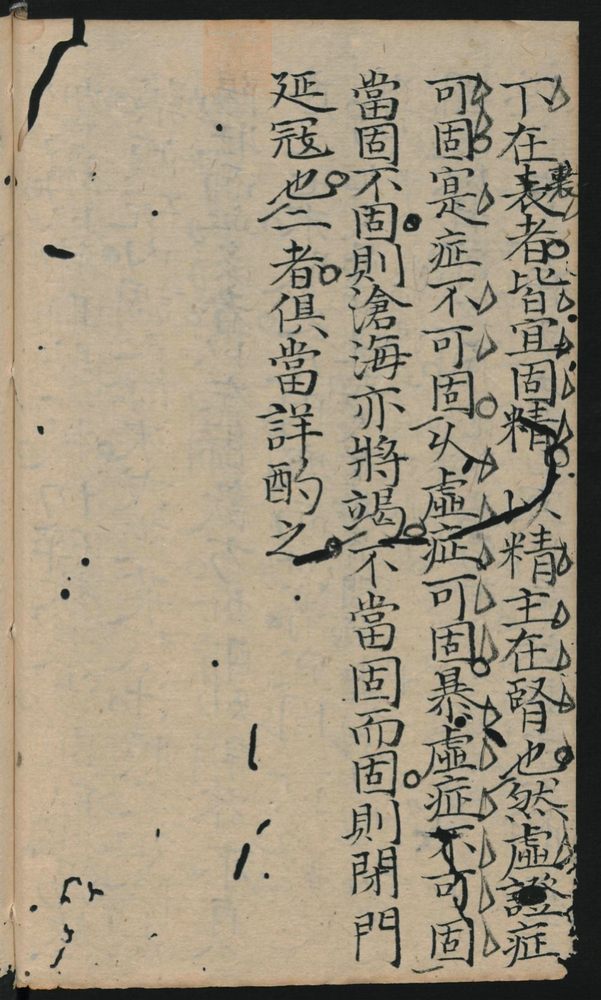 下在表裏者皆宜固精以精主在腎也然虛證症
可固寔症不可固久虛症可固暴虛症不可固
當固不固則滄海亦將竭不當固而固則閉門
延寇也二者俱當詳酌之